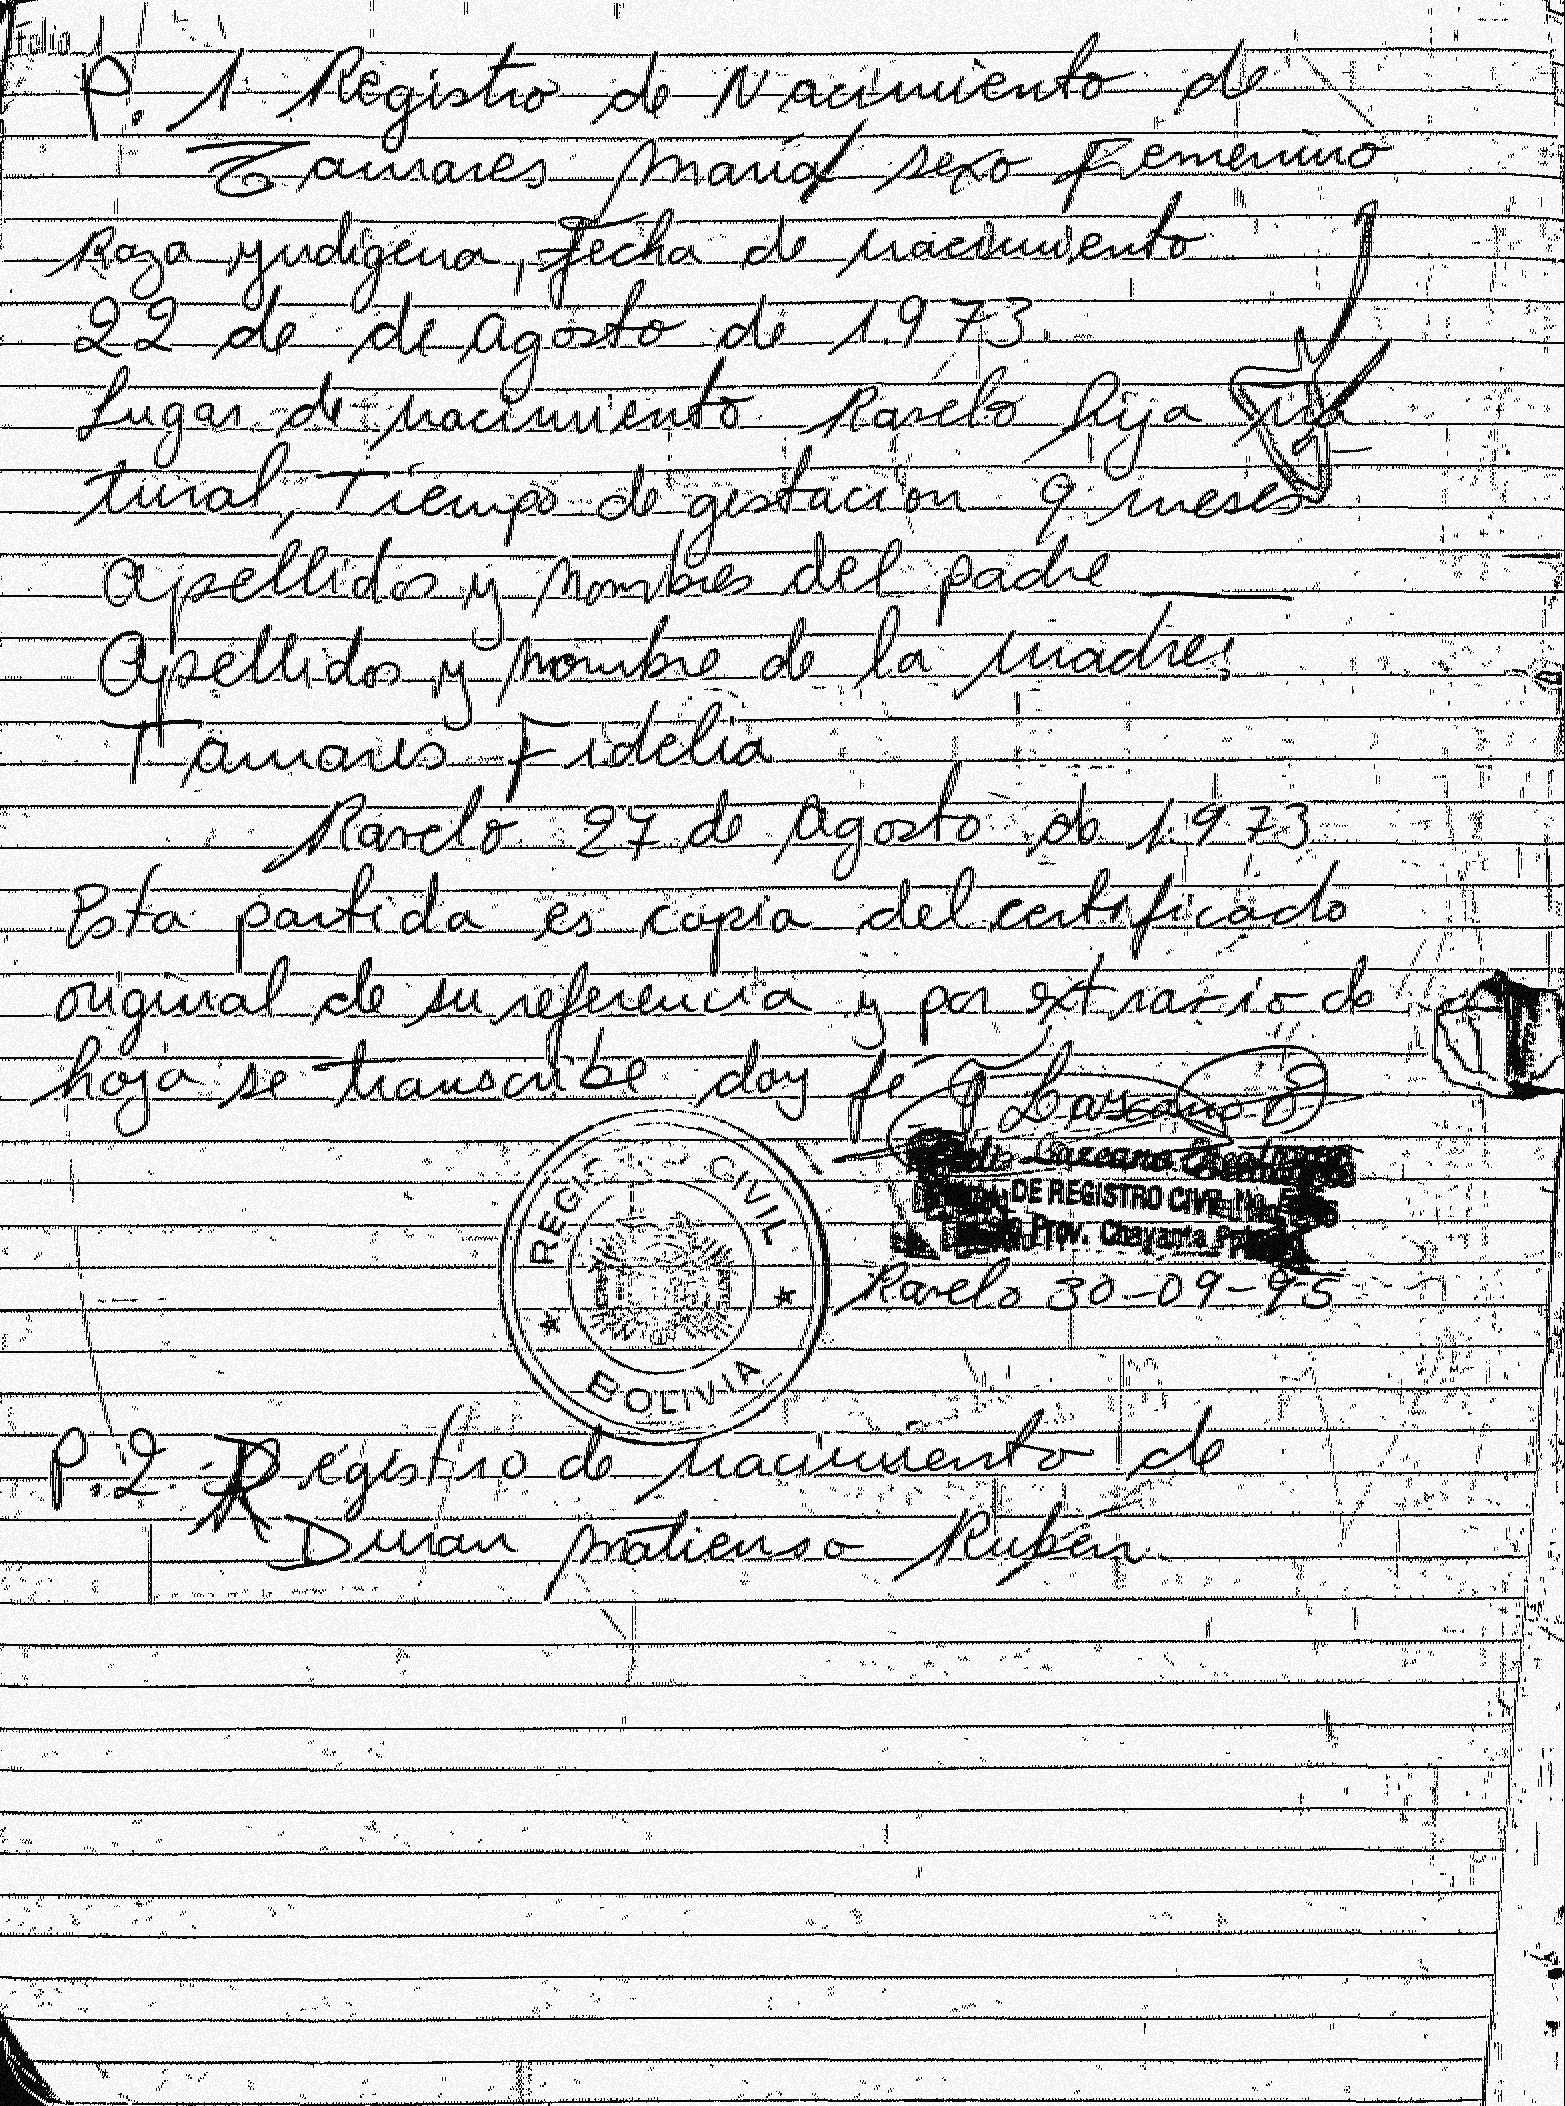 Folio 1
P. 1 Registro de Nacimiento de
Tamares María sexo Femenino
Raza yndigena, Fecha de nacimiento
22 de de Agosto de 1.973.
Lugar de nacimiento Ravelo hija na
tural, Tiempo de gestacion 9 meses
Apellidos y Nombres del padre ____
Apellidos y Nombre de la madre:
Tamares Fidelia
Ravelo 27 de Agosto de 1.973
Esta partida es copia del certificado
original de su referencia y por extravio de
hoja se transcribe doy fé
Lazcano
REGISTRO CIVIL
BOLIVIA
Lazcano
DE REGISTRO CIVIL No.
Prov. Chayanta
Ravelo 30-09-95
P. 2. Registro de nacimiento de
Duran Matienso Rubén